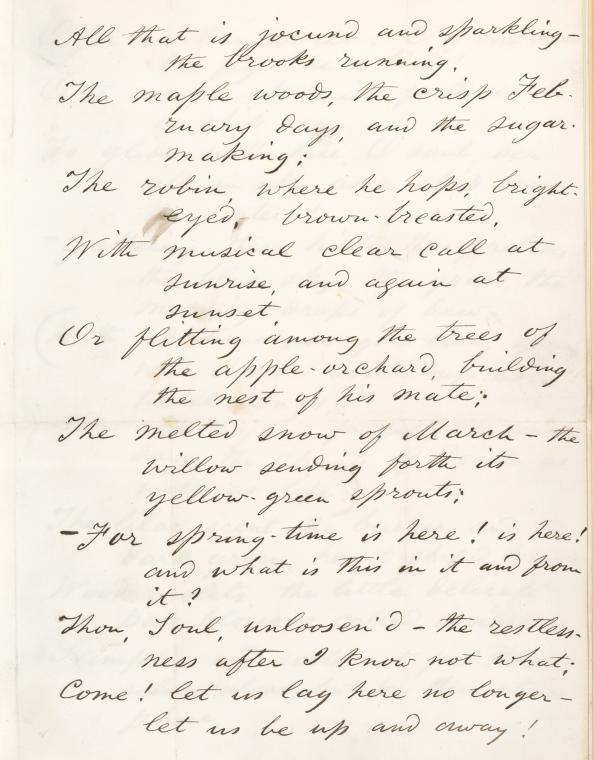 All that is jocund and sparkling—
the brooks running.
The maple woods, the crisp Feb-
ruary days, and the sugar-
making;
The robin, where he hops, bright-
eyed, brown-breasted,
With musical clear call at
sunrise, and again at
sunset
Or flitting among the trees of
the apple-orchard, building
the nest of his mate;
The melted snow of March — the
willow sending forth its
yellow-green sprouts;
—For spring-time is here! is here!
and what is this in it and from
it?
Thou, Soul, unloosen'd — the restless-
ness after I know not what;
Come! let us lag here no longer—
let us be up and away!